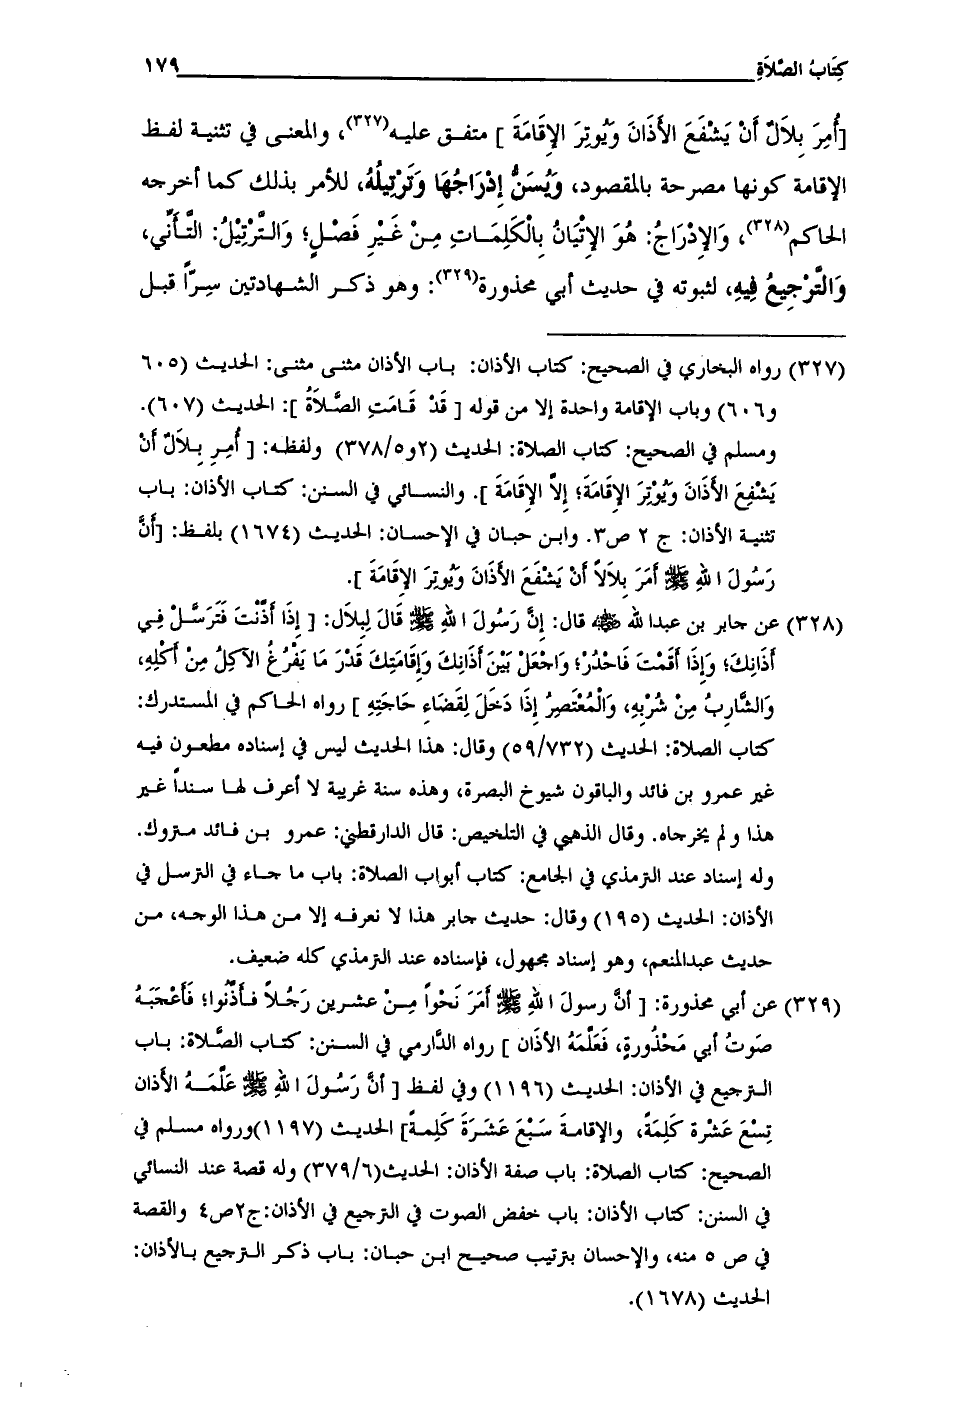 كِتَابُ الصَّلَاةِ ١٧٩
[أُمِرَ بِلَالٌ أَنْ يَشْفَعَ الأَذَانَ وَيُوتِرَ الإِقَامَةَ ] متفق عليه(٣٢٧)، والمعنى في تثنية لفظ
الإقامة كونها مصرحة بالمقصود، وَيُسَنُّ إِدْرَاجُهَا وَتَرْتِيلُهُ، للأمر بذلك كما أخرجه
الحاكم(٣٢٨)، وَالإِدْرَاجُ: هُوَ الإِتْيَانُ بِالْكَلِمَاتِ مِنْ غَيْرِ فَصْلٍ؛ وَالتَّرْتِيْلُ: التَّأَنِّي،
وَالتَّرْجِيعُ فِيهِ، لثبوته في حديث أبي محذورة(٣٢٩): وهو ذكر الشهادتين سِرّاً قبل
(٣٢٧) رواه البخاري في الصحيح: كتاب الأذان: باب الأذان مثنى مثنى: الحديث (٦٠٥
و٦٠٦) وباب الإقامة واحدة إلا من قوله [ قَدْ قَامَتِ الصَّلَاةُ ]: الحديث (٦٠٧).
ومسلم في الصحيح: كتاب الصلاة: الحديث (٢و٣٧٨/٥) ولفظه: [ أُمِرِ بِلَالٌ أَنْ
يَشْفِعَ الأَذَانَ وَيُوْتِرَ الإِقَامَةَ؛ إِلاَّ الإِقَامَةَ ]. والنسائي في السنن: كتاب الأذان: باب
تثنية الأذان: ج ٢ ص٣. وابن حبان في الإحسان: الحديث (١٦٧٤) بلفظ: [أَنَّ
رَسُولَ اللهِ ﷺ أَمَرَ بِلَالاً أَنْ يَشْفَعَ الأَذَانَ وَيُوتِرَ الإِقَامَةَ ].
(٣٢٨) عن جابر بن عبدالله ﵁ قال: إِنَّ رَسُولَ اللهِ ﷺ قَالَ لِبِلَال: [ إِذَا أَذَّنْتَ فَتَرَسَّلْ فِي
أَذَانِكَ؛ وَإِذَا أَقَمْتَ فَاحْدُرْ؛ وَاجْعَلْ بَيْنَ أَذَانِكَ وَإِقَامَتِكَ قَدْرَ مَا يَفْرُغُ الآكِلُ مِنْ أَكْلِهِ،
وَالشَّارِبُ مِنْ شُرْبِهِ، وَالْمُعْتَصِرُ إِذَا دَخَلَ لِقَضَاءِ حَاجَتِهِ ] رواه الحاكم في المستدرك:
كتاب الصلاة: الحديث (٥٩/٧٣٢) وقال: هذا الحديث ليس في إسناده مطعون فيه
غير عمرو بن فائد والباقون شيوخ البصرة، وهذه سنة غريبة لا أعرف لها سنداً غير
هذا ولم يخرجاه. وقال الذهبي في التلخيص: قال الدارقطني: عمرو بن فائد متروك.
وله إسناد عند الترمذي في الجامع: كتاب أبواب الصلاة: باب ما جاء في الترسل في
الأذان: الحديث (١٩٥) وقال: حديث جابر هذا لا نعرفه إلا من هذا الوجه، من
حديث عبدالمنعم، وهو إسناد مجهول، فإسناده عند الترمذي كله ضعيف.
(٣٢٩) عن أبي محذورة: [ أنَّ رسولَ اللهِ ﷺ أَمَرَ نَحْواً مِنْ عشرين رَجُلاً فَأَذَّنُوا؛ فَأَعْجَبَهُ
صَوتُ أبي مَحْذُورةٍ، فَعَلَّمَهُ الأَذَان ] رواه الدَّارمي في السنن: كتاب الصَّلاة: باب
الترجيع في الأذان: الحديث (١١٩٦) وفي لفظ [ أنَّ رَسُولَ اللهِ ﷺ عَلَّمَهُ الأَذان
تِسْعَ عَشْرة كَلِمَةً، والإقامةَ سَبْعَ عَشَرَةَ كَلِمةً] الحديث (١١٩٧)ورواه مسلم في
الصحيح: كتاب الصلاة: باب صفة الأذان: الحديث(٣٧٩/٦) وله قصة عند النسائي
في السنن: كتاب الأذان: باب خفض الصوت في الترجيع في الأذان:ج٢ص٤ والقصة
في ص ٥ منه، والإحسان بترتيب صحيح ابن حبان: باب ذكر الترجيع بالأذان:
الحديث (١٦٧٨).